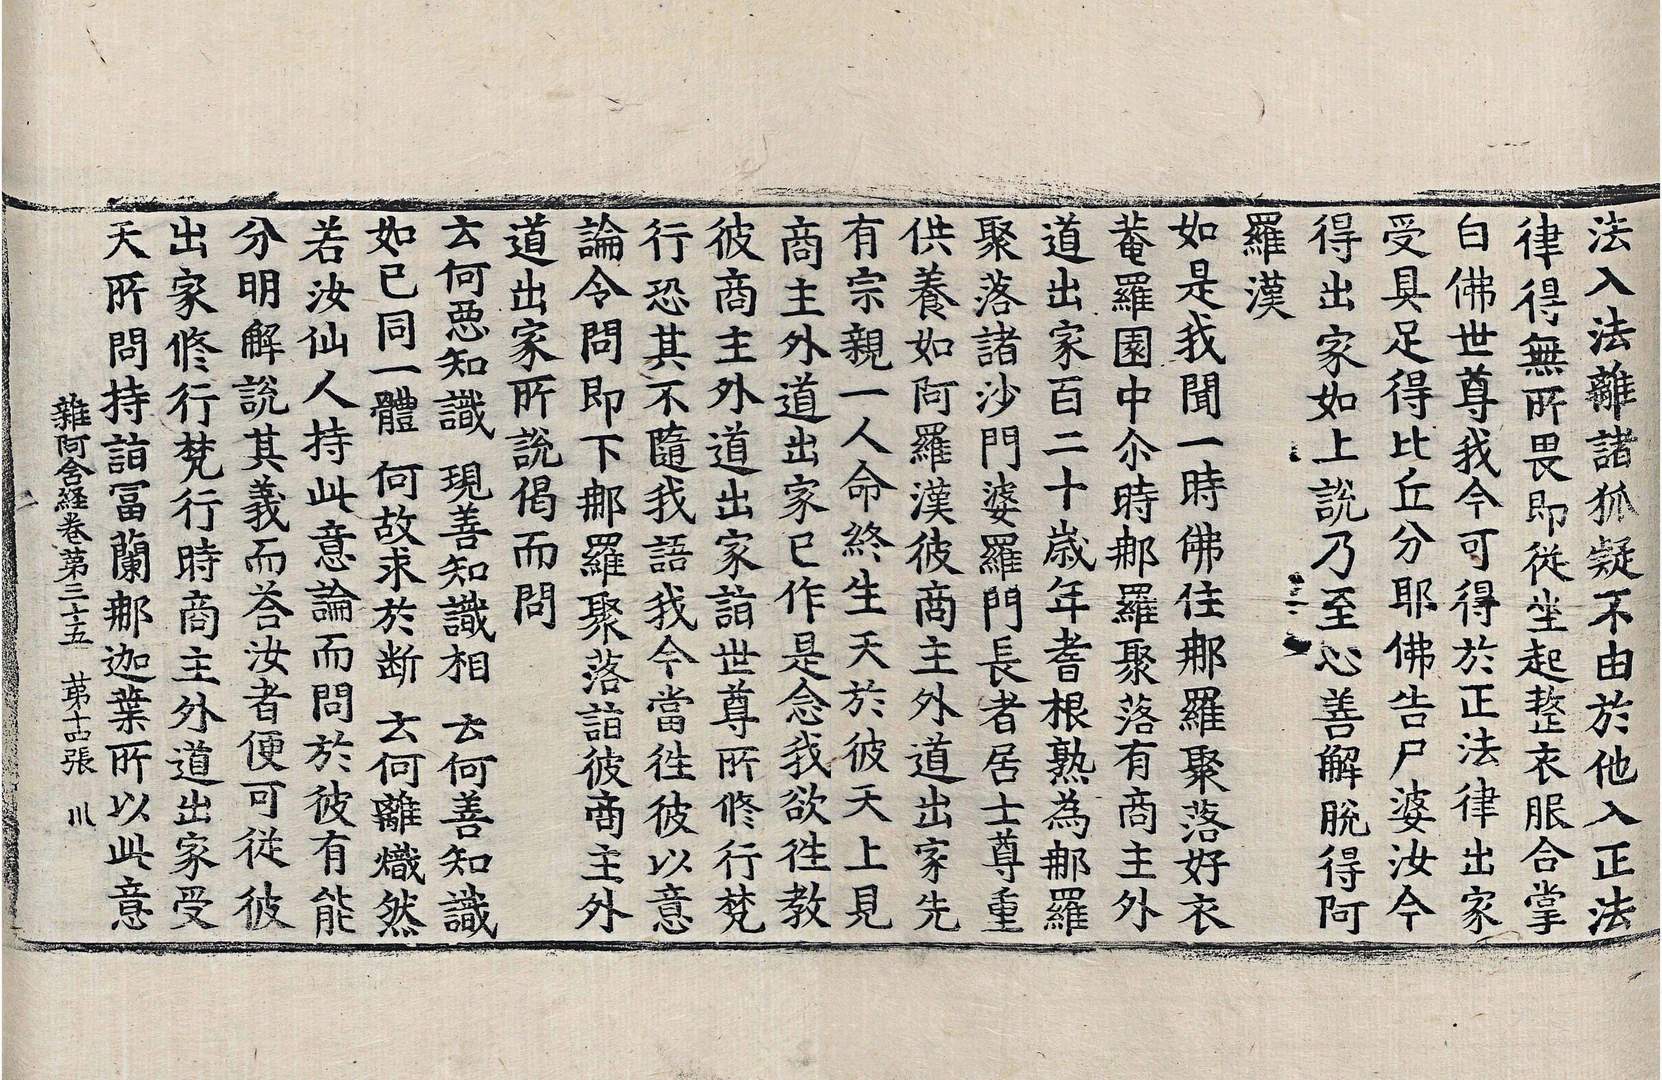 法入法離諸狐疑不由於他入正法
律得無所畏即從坐起整衣服合掌
白佛世尊我今可得於正法律出家
受具足得比丘分耶佛告尸婆汝今
得出家如上說乃至心善解脫得阿
羅漢
如是我聞一時佛住郍羅聚落好衣
菴羅園中尒時郍羅聚落有商主外
道出家百二十歲年耆根熟為郍羅
聚落諸沙門婆羅門長者居士尊重
供養如阿羅漢彼商主外道出家先
有宗親一人命終生天於彼天上見
商主外道出家已作是念我欲往教
彼商主外道出家詣世尊所修行梵
行恐其不隨我語我今當往彼以意
論令問即下郍羅聚落詣彼商主外
道出家所說偈而問
云何惡知識 現善知識相 云何善知識
如已同一體 何故求於断 云何離熾然
若汝仙人持此意論而問於彼有能
分明解說其義而荅汝者便可從彼
出家修行梵行時商主外道出家受
天所問持詣冨蘭郍迦葉所以此意
雜阿含経卷第三十五 第十四張 川